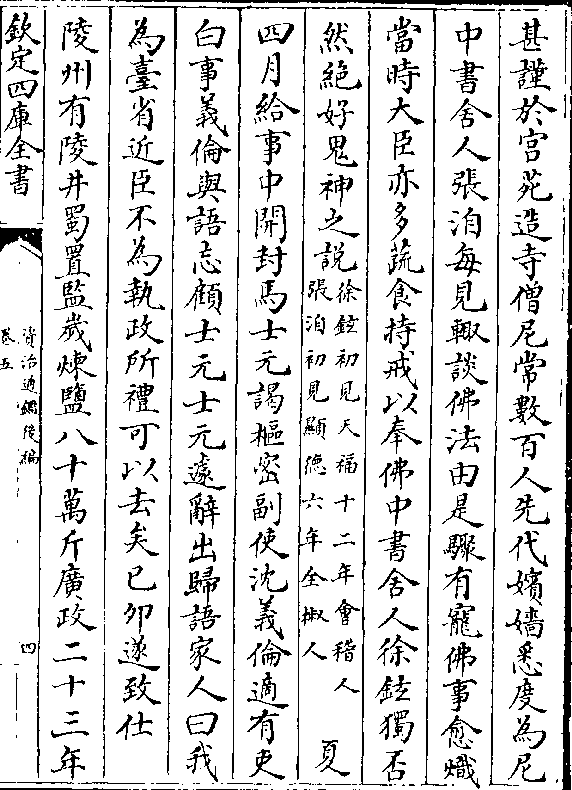 甚謹於宫苑造寺僧尼常數百人先代嬪嬙悉度為尼
中書舍人張洎每見輒談佛法由是驟有寵佛事愈熾
當時大臣亦多蔬食持戒以奉佛中書舍人徐鉉獨否
然絶好鬼神之説徐鉉初見天福十二年會稽人張洎初見顯德六年全椒人 夏
四月給事中開封馬士元謁樞密副使沈義倫適有吏
白事義倫與語忘顧士元士元遽辭出歸語家人曰我
為臺省近臣不為執政所禮可以去矣已卯遂致仕
陵州有陵井蜀置監歲煉鹽八十萬斤廣政二十三年
欽定四庫全書
資治通鑑後編
卷五
四